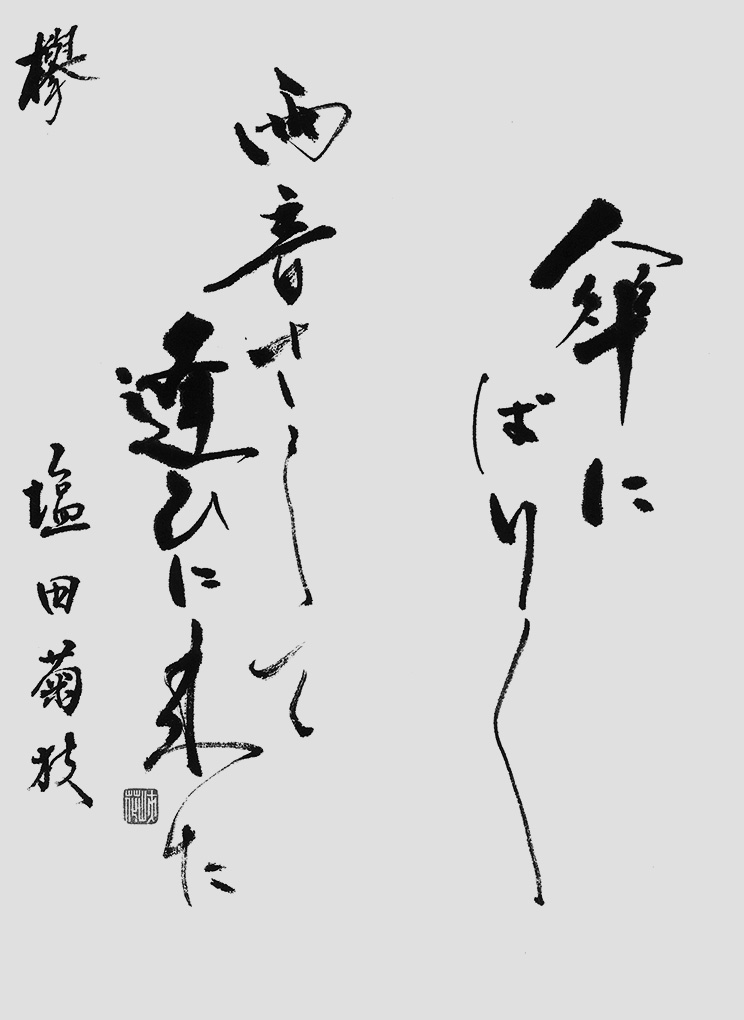 傘に
ばり〱
雨音さして
逢ひに来た
欅 塩田菊枝